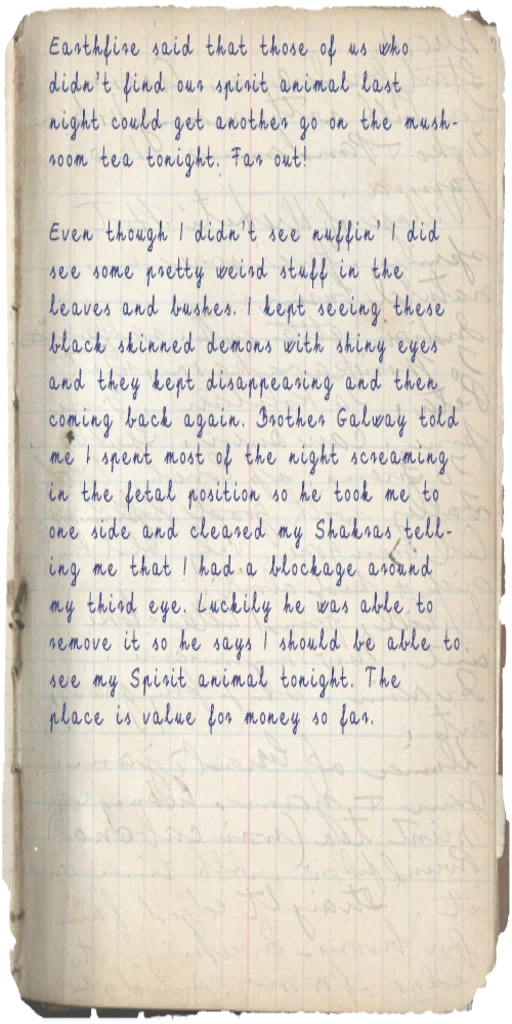 Earthfire said that those of us who
didn't find our spirit animal last
night could get another go on the mush-
room tea tonight. Far out!
Even though I didn't see nuffin' I did
see some pretty weird stuff in the
leaves and bushes. I kept seeing these
black skinned demons with shiny eyes
and they kept disappearing and then
coming back again. Brother Galway told
me I spent most of the night screaming
in the fetal position so he took me to
one side and cleared my Shakras tell-
ing me that I had a blockage around
my third eye. Luckily he was able to
remove it so he says I should be able to
see my Spirit animal tonight. The
place is value for money so far.